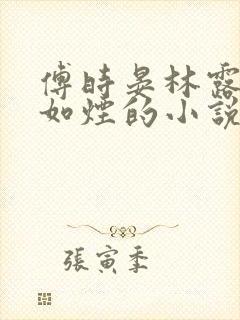 傅時晏林露
如煙的小說
張寅季